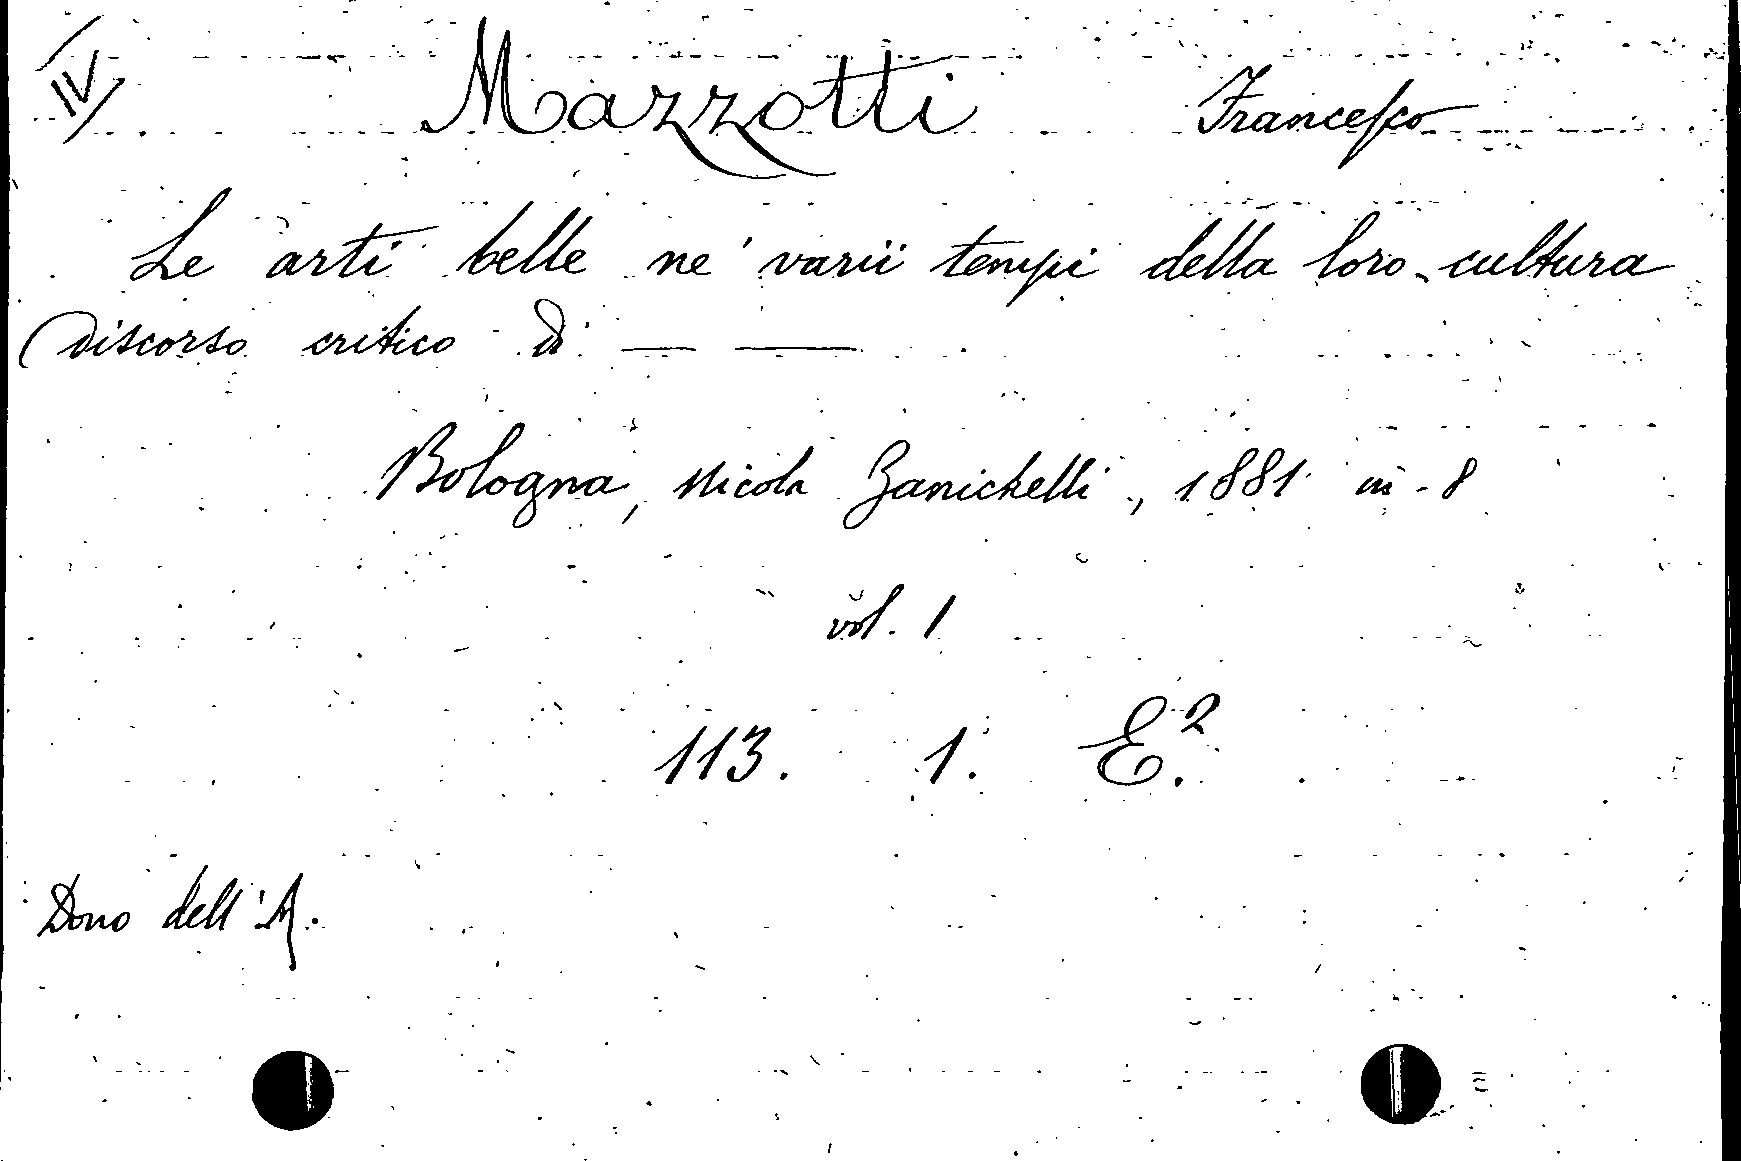 IV
Mazzotti Francesco
Le arti belle ne' varii tempi della loro cultura
Discorso critico di — —
Bologna, Nicola Zanichelli, 1881 in-8
vol. 1
113. 1. E.²
Dono dell'A.